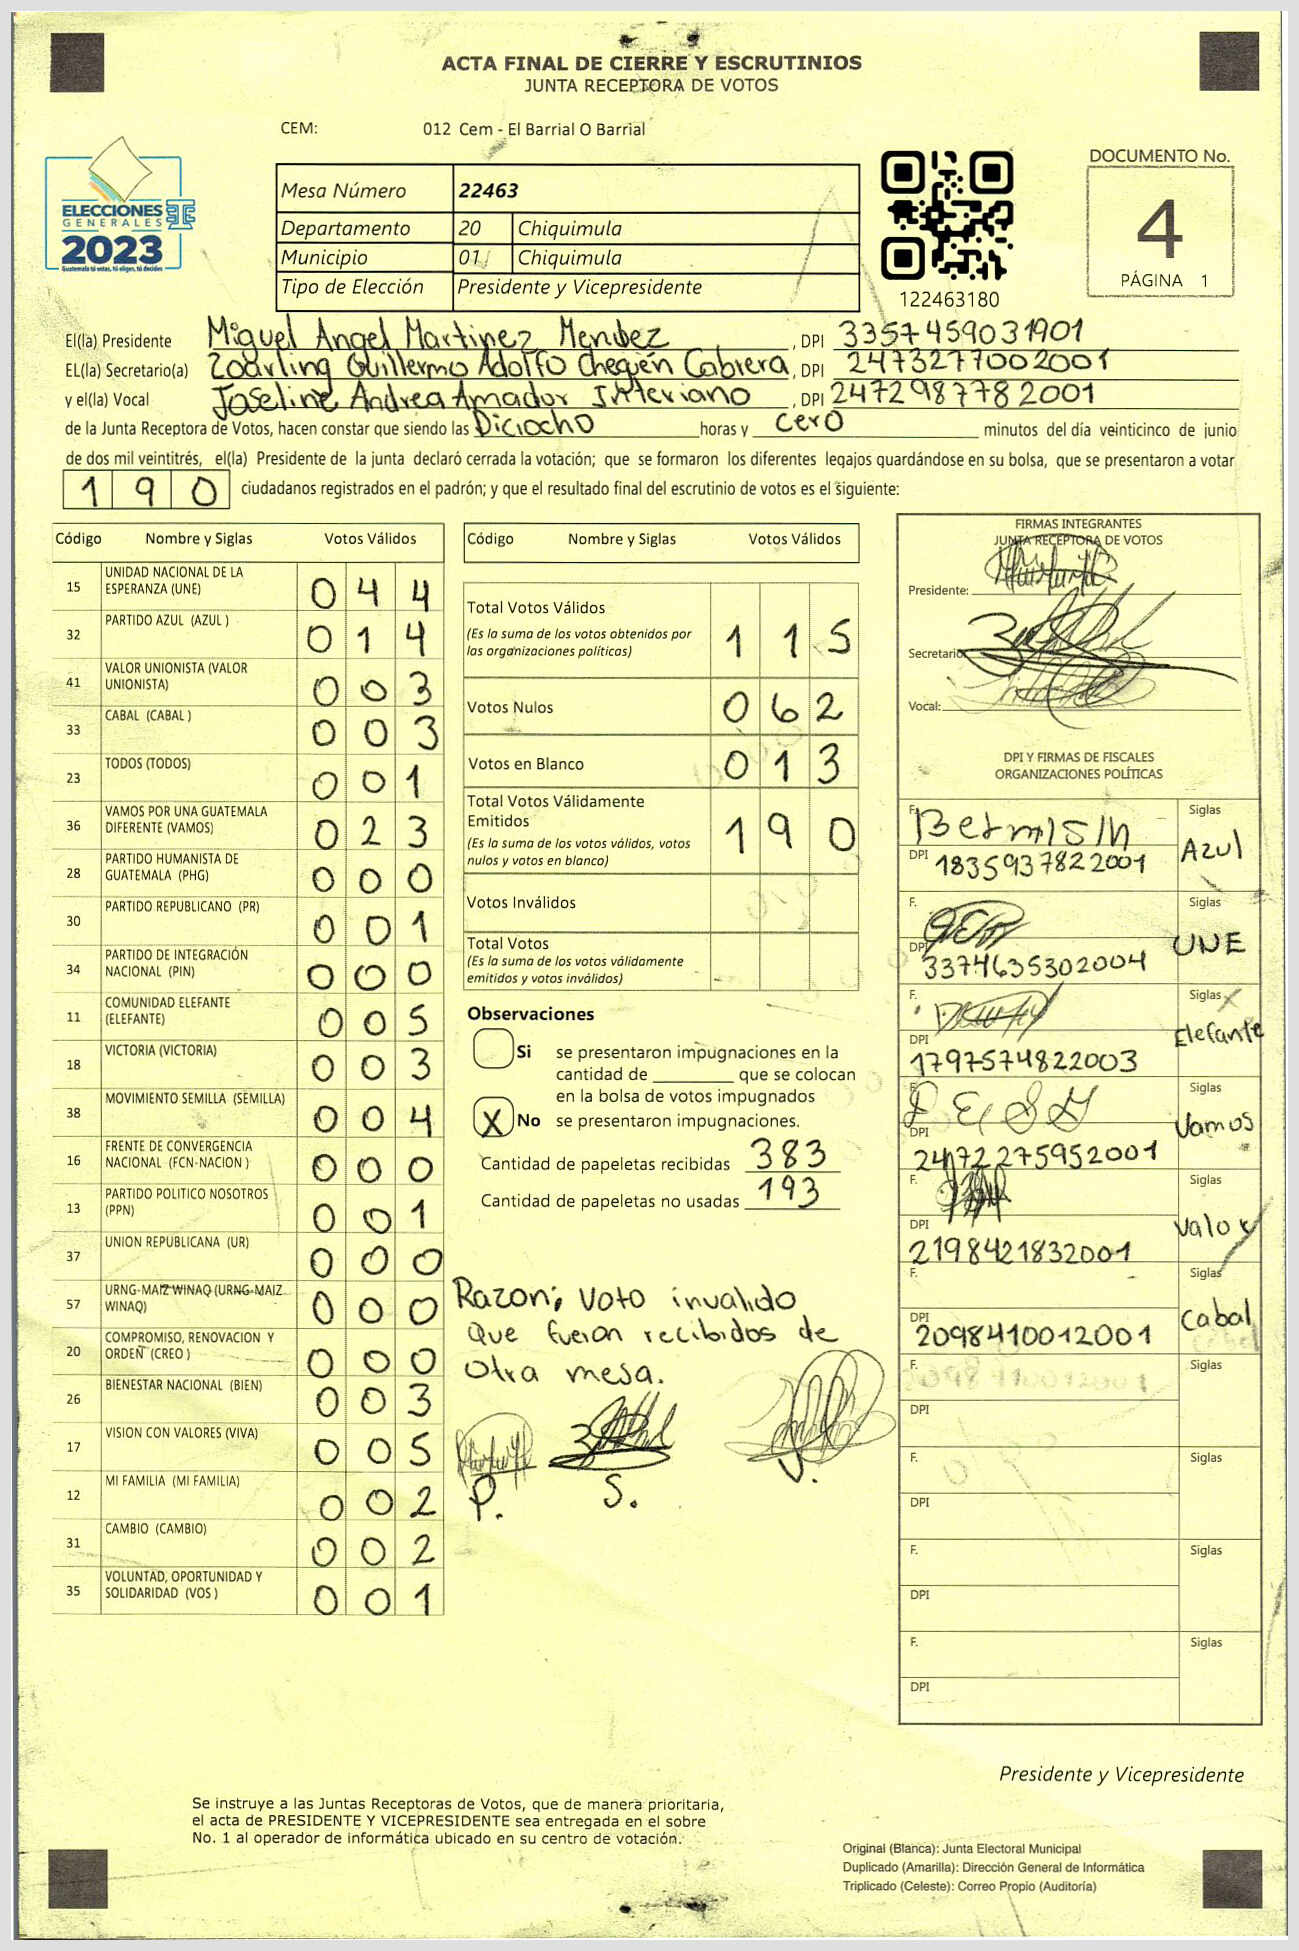 ACTA FINAL DE CIERRE Y ESCRUTINIOS
JUNTA RECEPTORA DE VOTOS
CEM: 012 Cem - El Barrial O Barrial
ELECCIONES
GENERALES
2023
Guatemala tú votas, tú eliges, tú decides
Mesa Número 22463
Departamento 20 Chiquimula
Municipio 01 Chiquimula
Tipo de Elección Presidente y Vicepresidente
122463180
DOCUMENTO No.
4
PÁGINA 1
El(la) Presidente Miguel Angel Martinez Mendez, DPI 3357459031901
EL(la) Secretario(a) Zoarling Guillermo Adolfo Cheguén Cabrera, DPI 2473277002001
y el(la) Vocal Joseline Andrea Amador Interiano, DPI 2472987782001
de la Junta Receptora de Votos, hacen constar que siendo las Diciocho horas y cero minutos del día veinticinco de junio
de dos mil veintitrés, el(la) Presidente de la junta declaró cerrada la votación; que se formaron los diferentes legajos guardándose en su bolsa, que se presentaron a votar
190 ciudadanos registrados en el padrón; y que el resultado final del escrutinio de votos es el siguiente:
Código Nombre y Siglas Votos Válidos
15 UNIDAD NACIONAL DE LA ESPERANZA (UNE) 044
32 PARTIDO AZUL (AZUL ) 014
41 VALOR UNIONISTA (VALOR UNIONISTA) 003
33 CABAL (CABAL ) 003
23 TODOS (TODOS) 001
36 VAMOS POR UNA GUATEMALA DIFERENTE (VAMOS) 023
28 PARTIDO HUMANISTA DE GUATEMALA (PHG) 000
30 PARTIDO REPUBLICANO (PR) 001
34 PARTIDO DE INTEGRACIÓN NACIONAL (PIN) 000
11 COMUNIDAD ELEFANTE (ELEFANTE) 005
18 VICTORIA (VICTORIA) 003
38 MOVIMIENTO SEMILLA (SEMILLA) 004
16 FRENTE DE CONVERGENCIA NACIONAL (FCN-NACION ) 000
13 PARTIDO POLITICO NOSOTROS (PPN) 001
37 UNION REPUBLICANA (UR) 000
57 URNG-MAIZ WINAQ (URNG-MAIZ WINAQ) 000
20 COMPROMISO, RENOVACION Y ORDEN (CREO ) 000
26 BIENESTAR NACIONAL (BIEN) 003
17 VISION CON VALORES (VIVA) 005
12 MI FAMILIA (MI FAMILIA) 002
31 CAMBIO (CAMBIO) 002
35 VOLUNTAD, OPORTUNIDAD Y SOLIDARIDAD (VOS ) 001
Código Nombre y Siglas Votos Válidos
Total Votos Válidos 115
(Es la suma de los votos obtenidos por
las organizaciones políticas)
Votos Nulos 062
Votos en Blanco 013
Total Votos Válidamente
Emitidos 190
(Es la suma de los votos válidos, votos
nulos y votos en blanco)
Votos Inválidos
Total Votos
(Es la suma de los votos válidamente
emitidos y votos inválidos)
Observaciones
Si se presentaron impugnaciones en la
cantidad de ________ que se colocan
en la bolsa de votos impugnados
X No se presentaron impugnaciones.
Cantidad de papeletas recibidas 383
Cantidad de papeletas no usadas 193
Razon; Voto invalido
Que fueron recibidos de
Otra mesa.
P. S. V.
FIRMAS INTEGRANTES
JUNTA RECEPTORA DE VOTOS
Presidente:
Secretario
Vocal:
DPI Y FIRMAS DE FISCALES
ORGANIZACIONES POLÍTICAS
F. Siglas
DPI 1835937822001 Azul
F. Siglas
DPI 3374635302004 UNE
F. Siglas
DPI 1797574822003 Elefante
F. Siglas
DPI 2472275952001 Vamos
F. Siglas
DPI 2198421832001 Valor
F. Siglas
DPI 2098410012001 Cabal
F. Siglas
DPI
F. Siglas
DPI
F. Siglas
DPI
F. Siglas
DPI
Presidente y Vicepresidente
Se instruye a las Juntas Receptoras de Votos, que de manera prioritaria,
el acta de PRESIDENTE Y VICEPRESIDENTE sea entregada en el sobre
No. 1 al operador de informática ubicado en su centro de votación.
Original (Blanca): Junta Electoral Municipal
Duplicado (Amarilla): Dirección General de Informática
Triplicado (Celeste): Correo Propio (Auditoría)